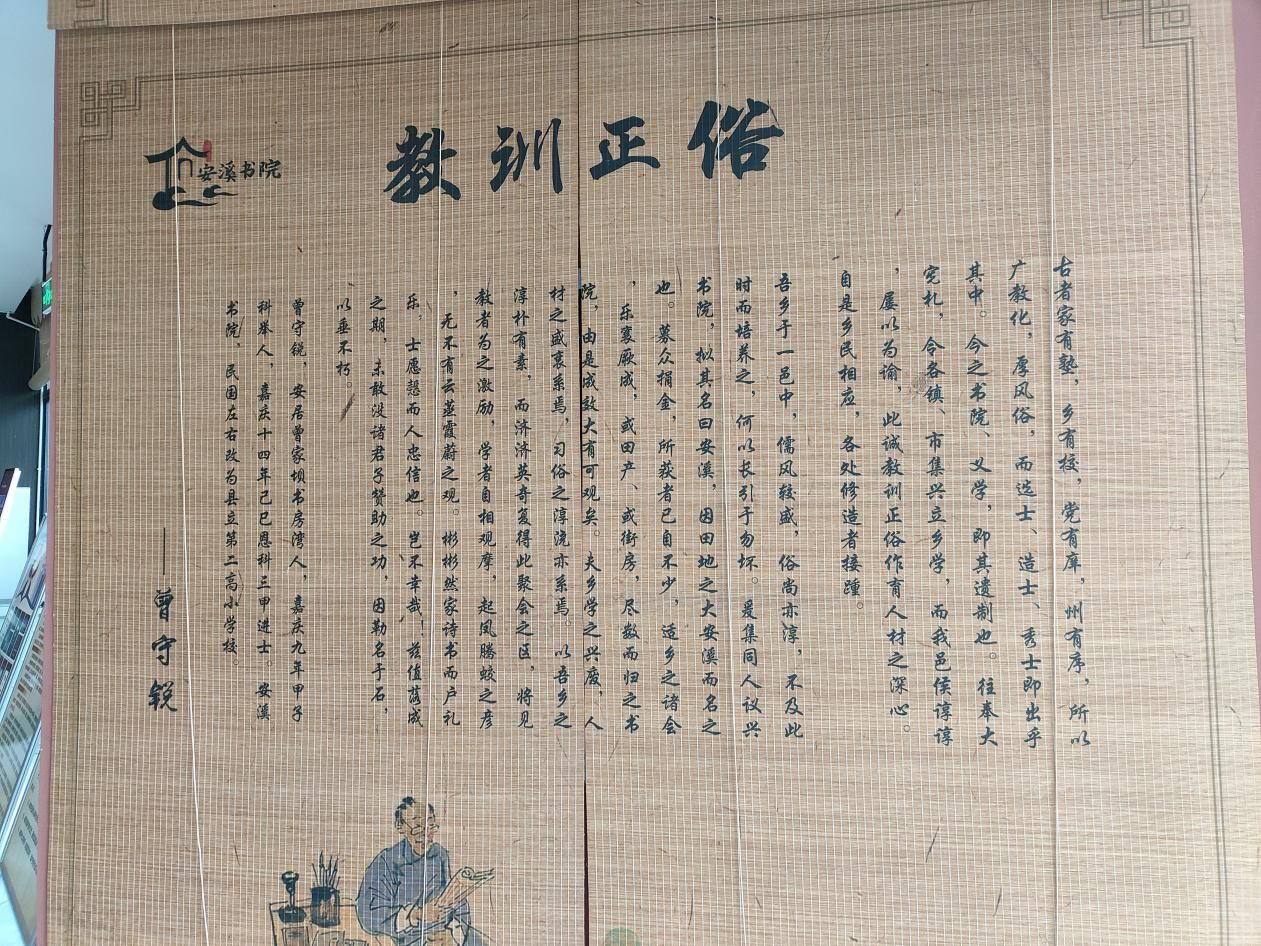 安溪书院
教训正俗
古者家有塾，乡有校，党有庠，州有序，所以
广教化，厚风俗，而选士、造士、秀士即出乎
其中。今之书院、义学，即其遗制也。往奉大
宪札，令各镇、市集兴立乡学，而我邑侯谆谆
，屡以为谕，此诚教训正俗作育人材之深心。
自是乡民相应，各处修造者接踵。
吾乡于一邑中，儒风较盛，俗尚亦淳，不及此
时而培养之，何以长引于勿坏。爰集同人议兴
书院，拟其名曰安溪，因田地之大安溪而名之
也。募众捐金，所获者已自不少，适乡之诸会
，乐襄厥成，或田产、或街房，尽数而归之书
院，由是成数大有可观矣。夫乡学之兴废，人
材之盛衰系焉，习俗之淳浇亦系焉。以吾乡之
淳朴有素，而济济英奇复得此聚会之区，将见
教者为之激励，学者自相观摩，起凤腾蛟之彦
，无不有云蒸霞蔚之观。彬彬然家诗书而户礼
乐，士愿悫而人忠信也。岂不幸哉！兹值落成
之期，未敢没诸君子赞助之功，因勒名于石，
以垂不朽。
曾守锐，安居曾家坝书房湾人，嘉庆九年甲子
科举人，嘉庆十四年己巳恩科三甲进士。安溪
书院，民国左右改为县立第二高小学校。
——曾守锐